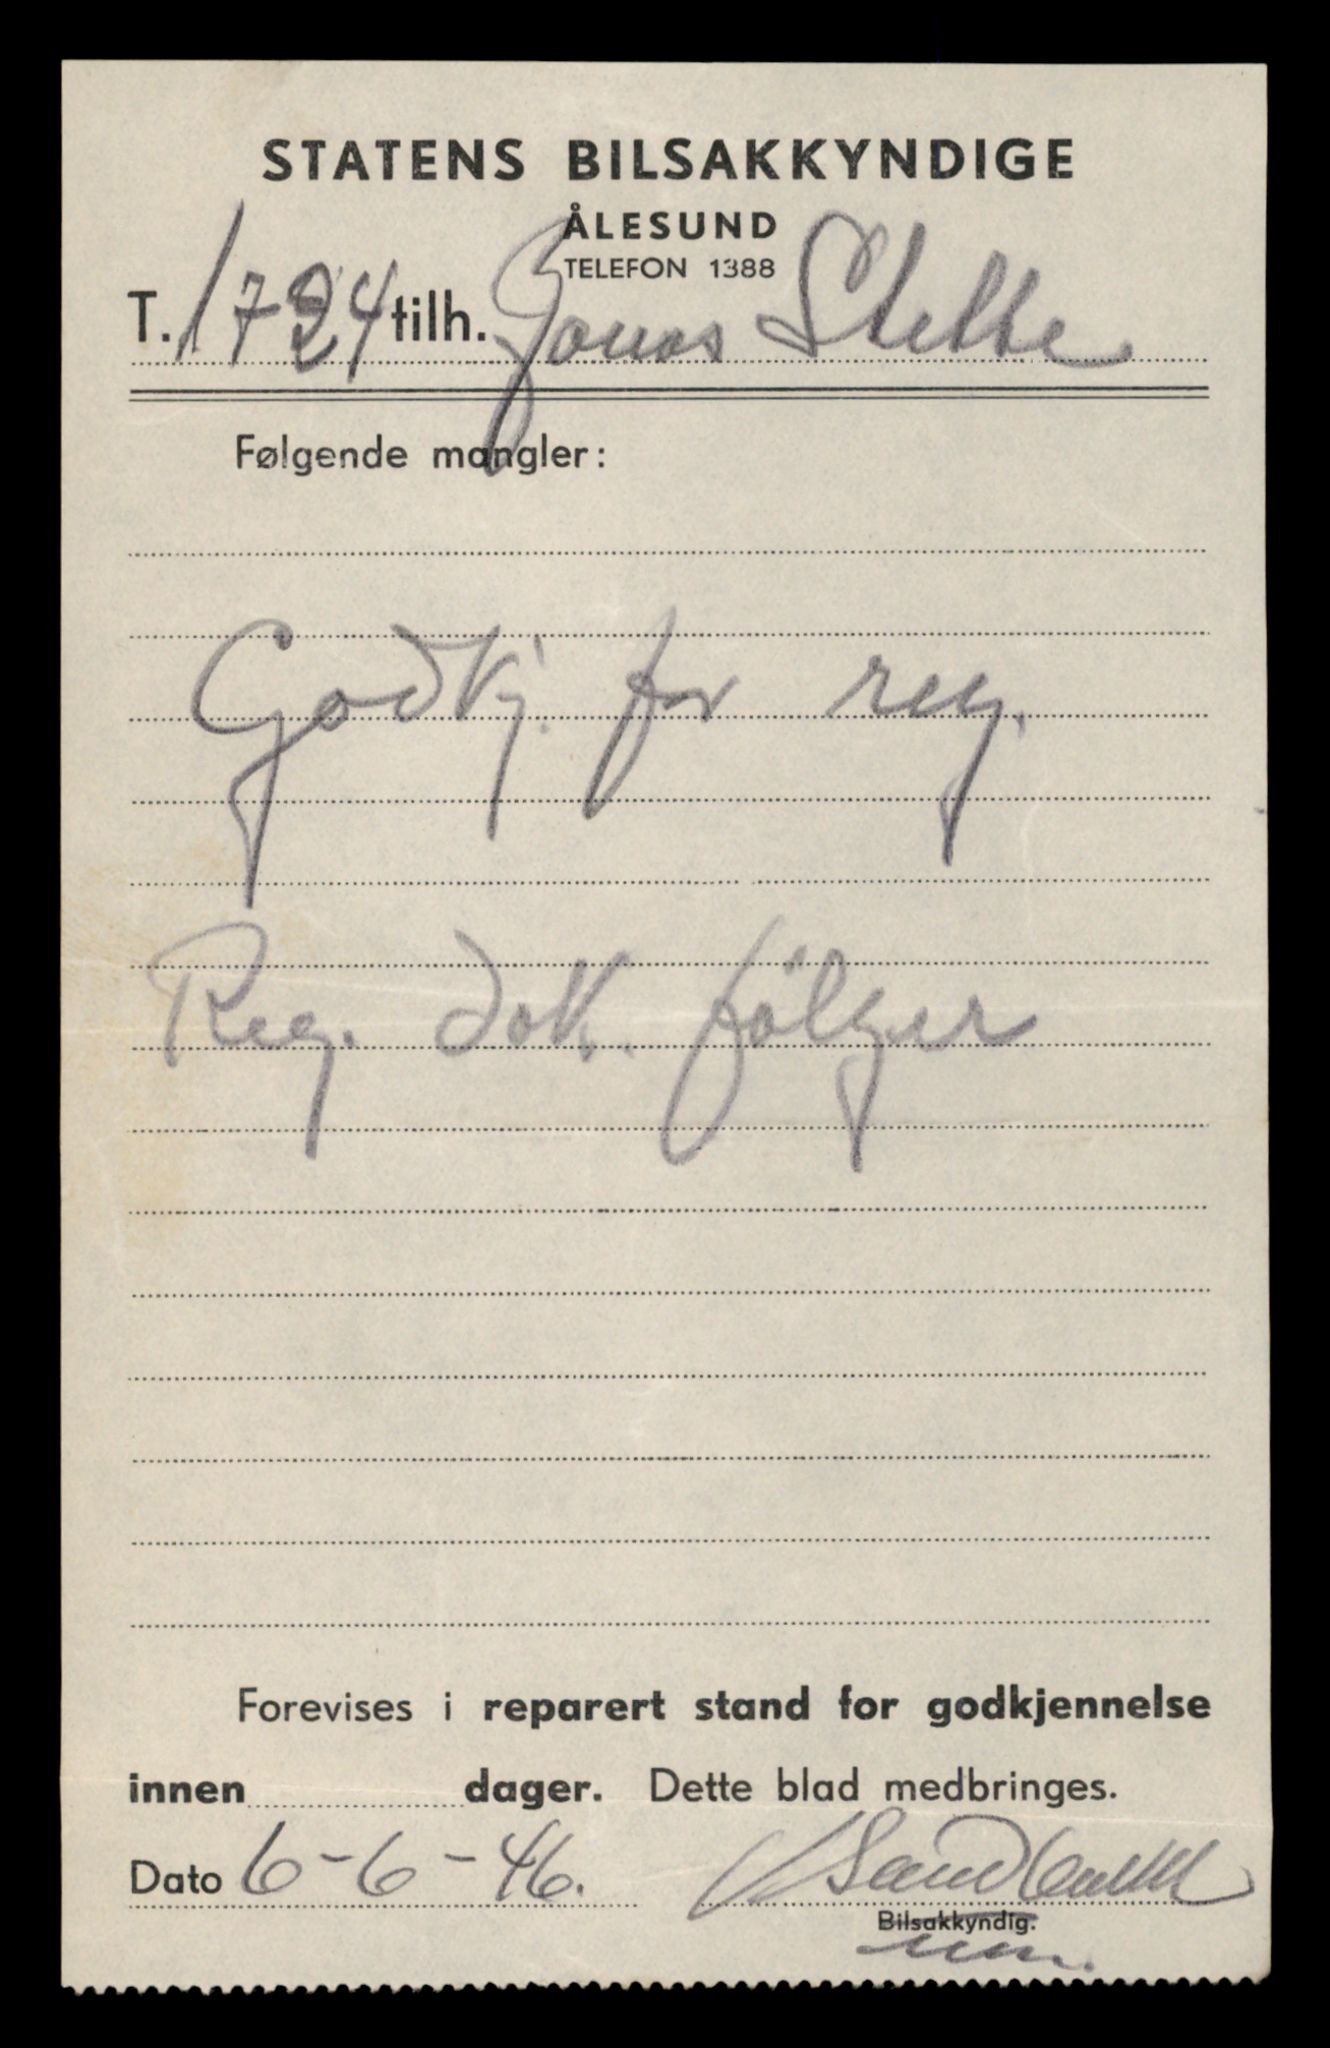 STATENS BILSAKKYNDIGE
ÅLESUND
TELEFON 1388
T. 1724 tilh. Jonas Stette
Følgende mangler:
Godkj. for reg.
Reg. dok. følger
Forevises i reparert stand for godkjennelse
innen dager. Dette blad medbringes.
Dato 6-6-46.
Bilsakkyndig.